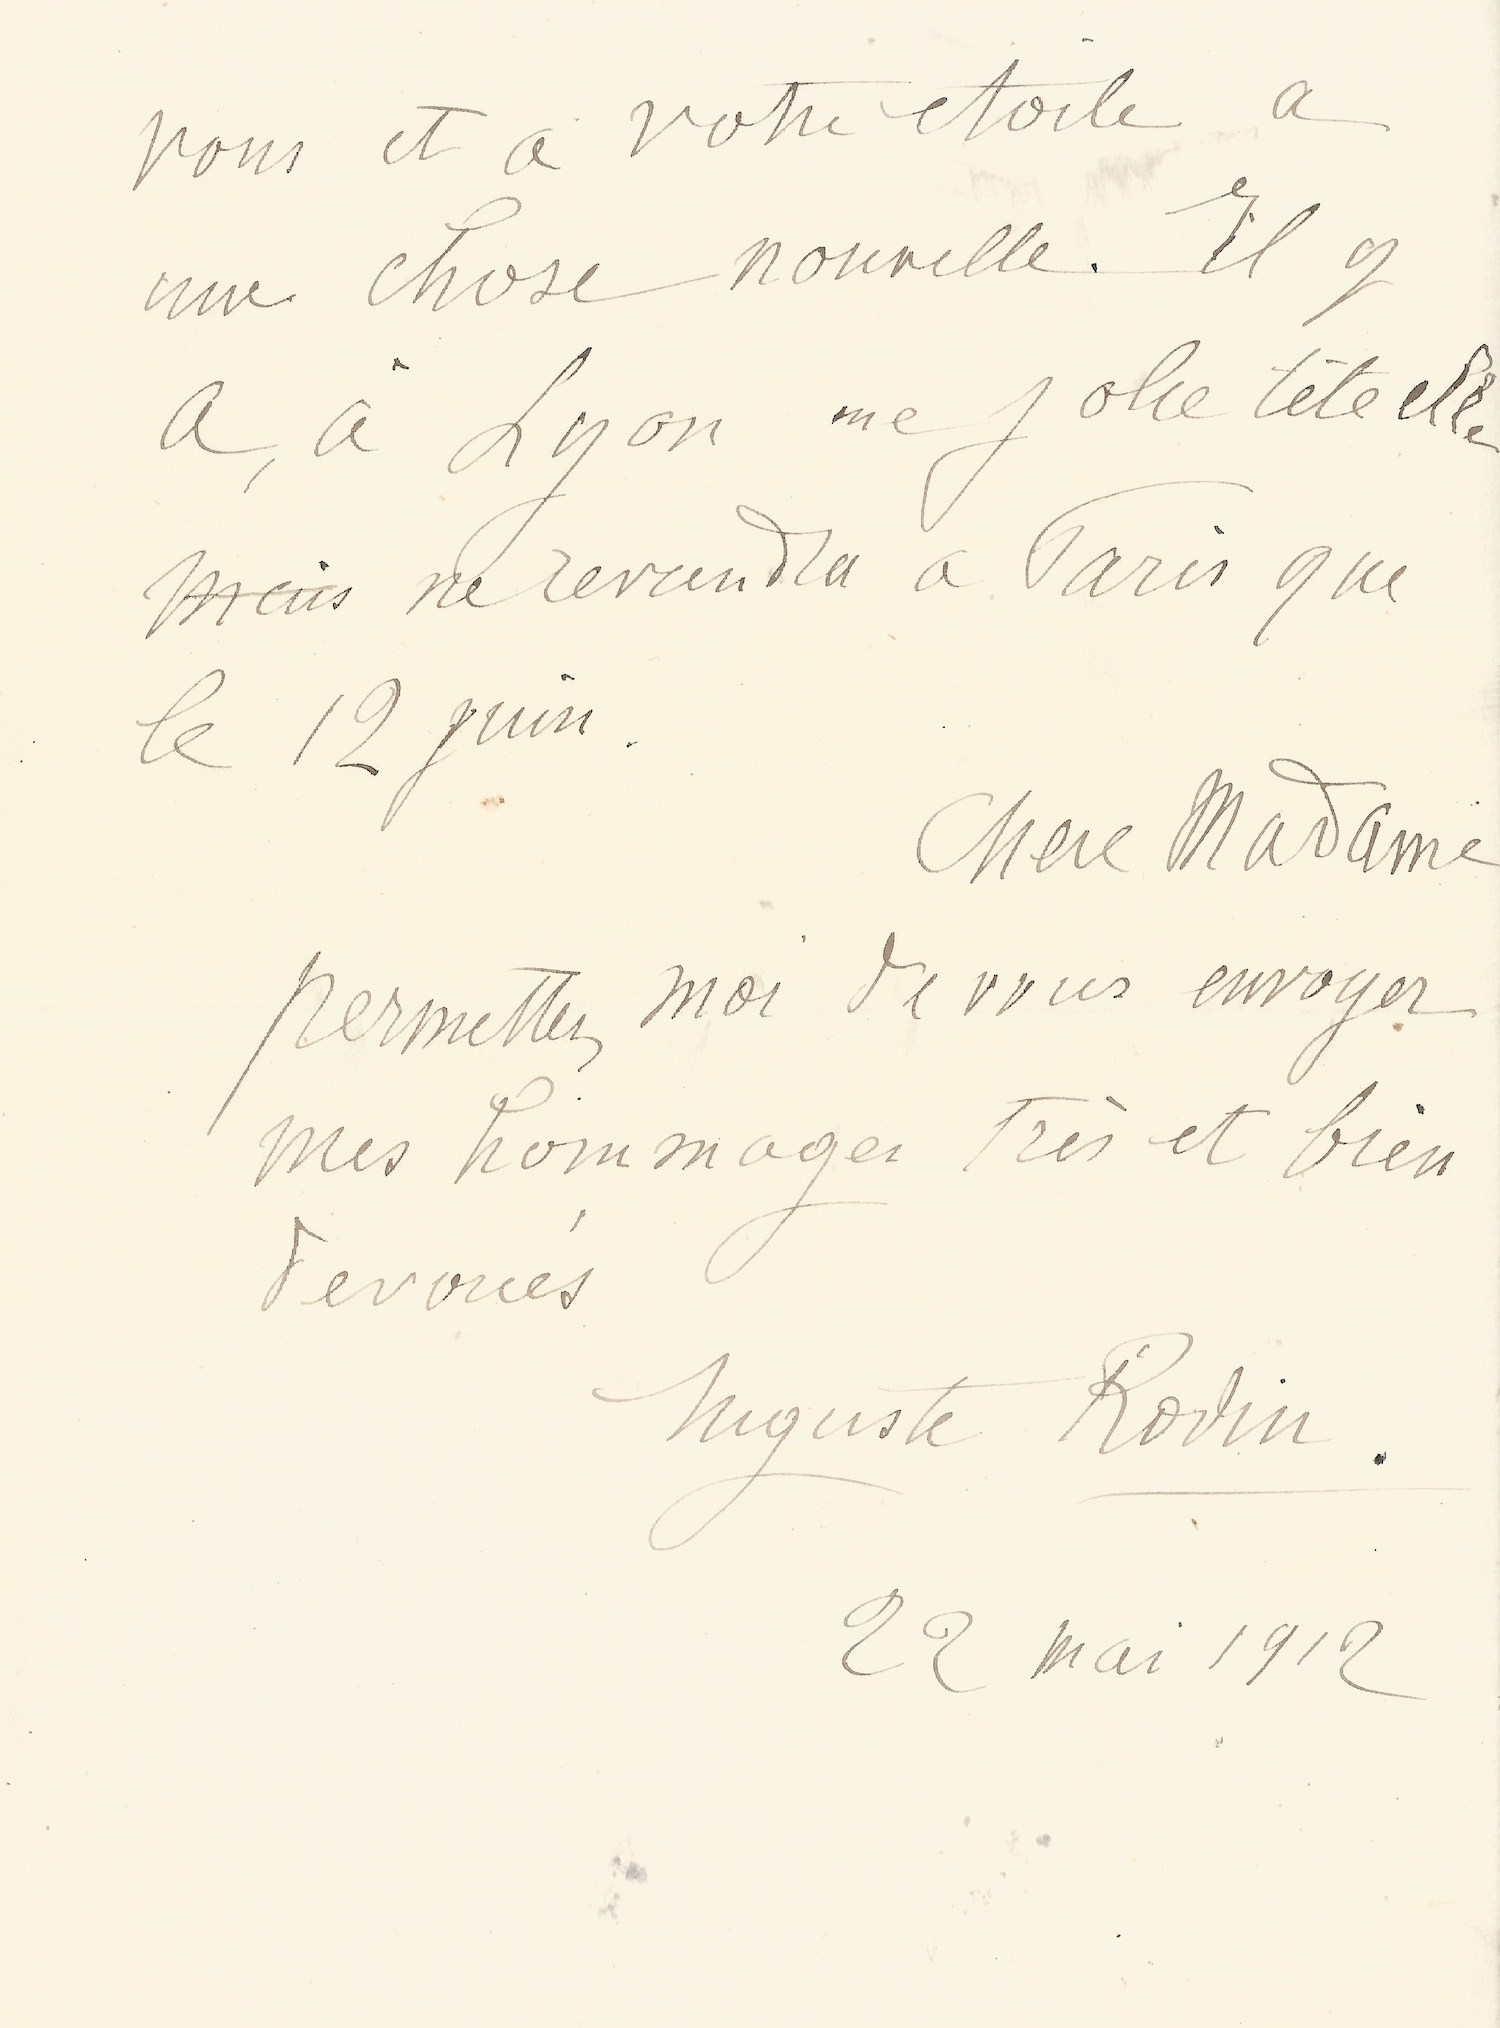 vous et à votre etoile a
une chose nouvelle. Il y
a, à Lyon une jolie tête elle
mais ne reviendra a Paris que
le 12 juin.
Chere Madame
permettez moi de vous envoyer
mes hommages très et bien
devoués
Auguste Rodin.
22 mai 1912